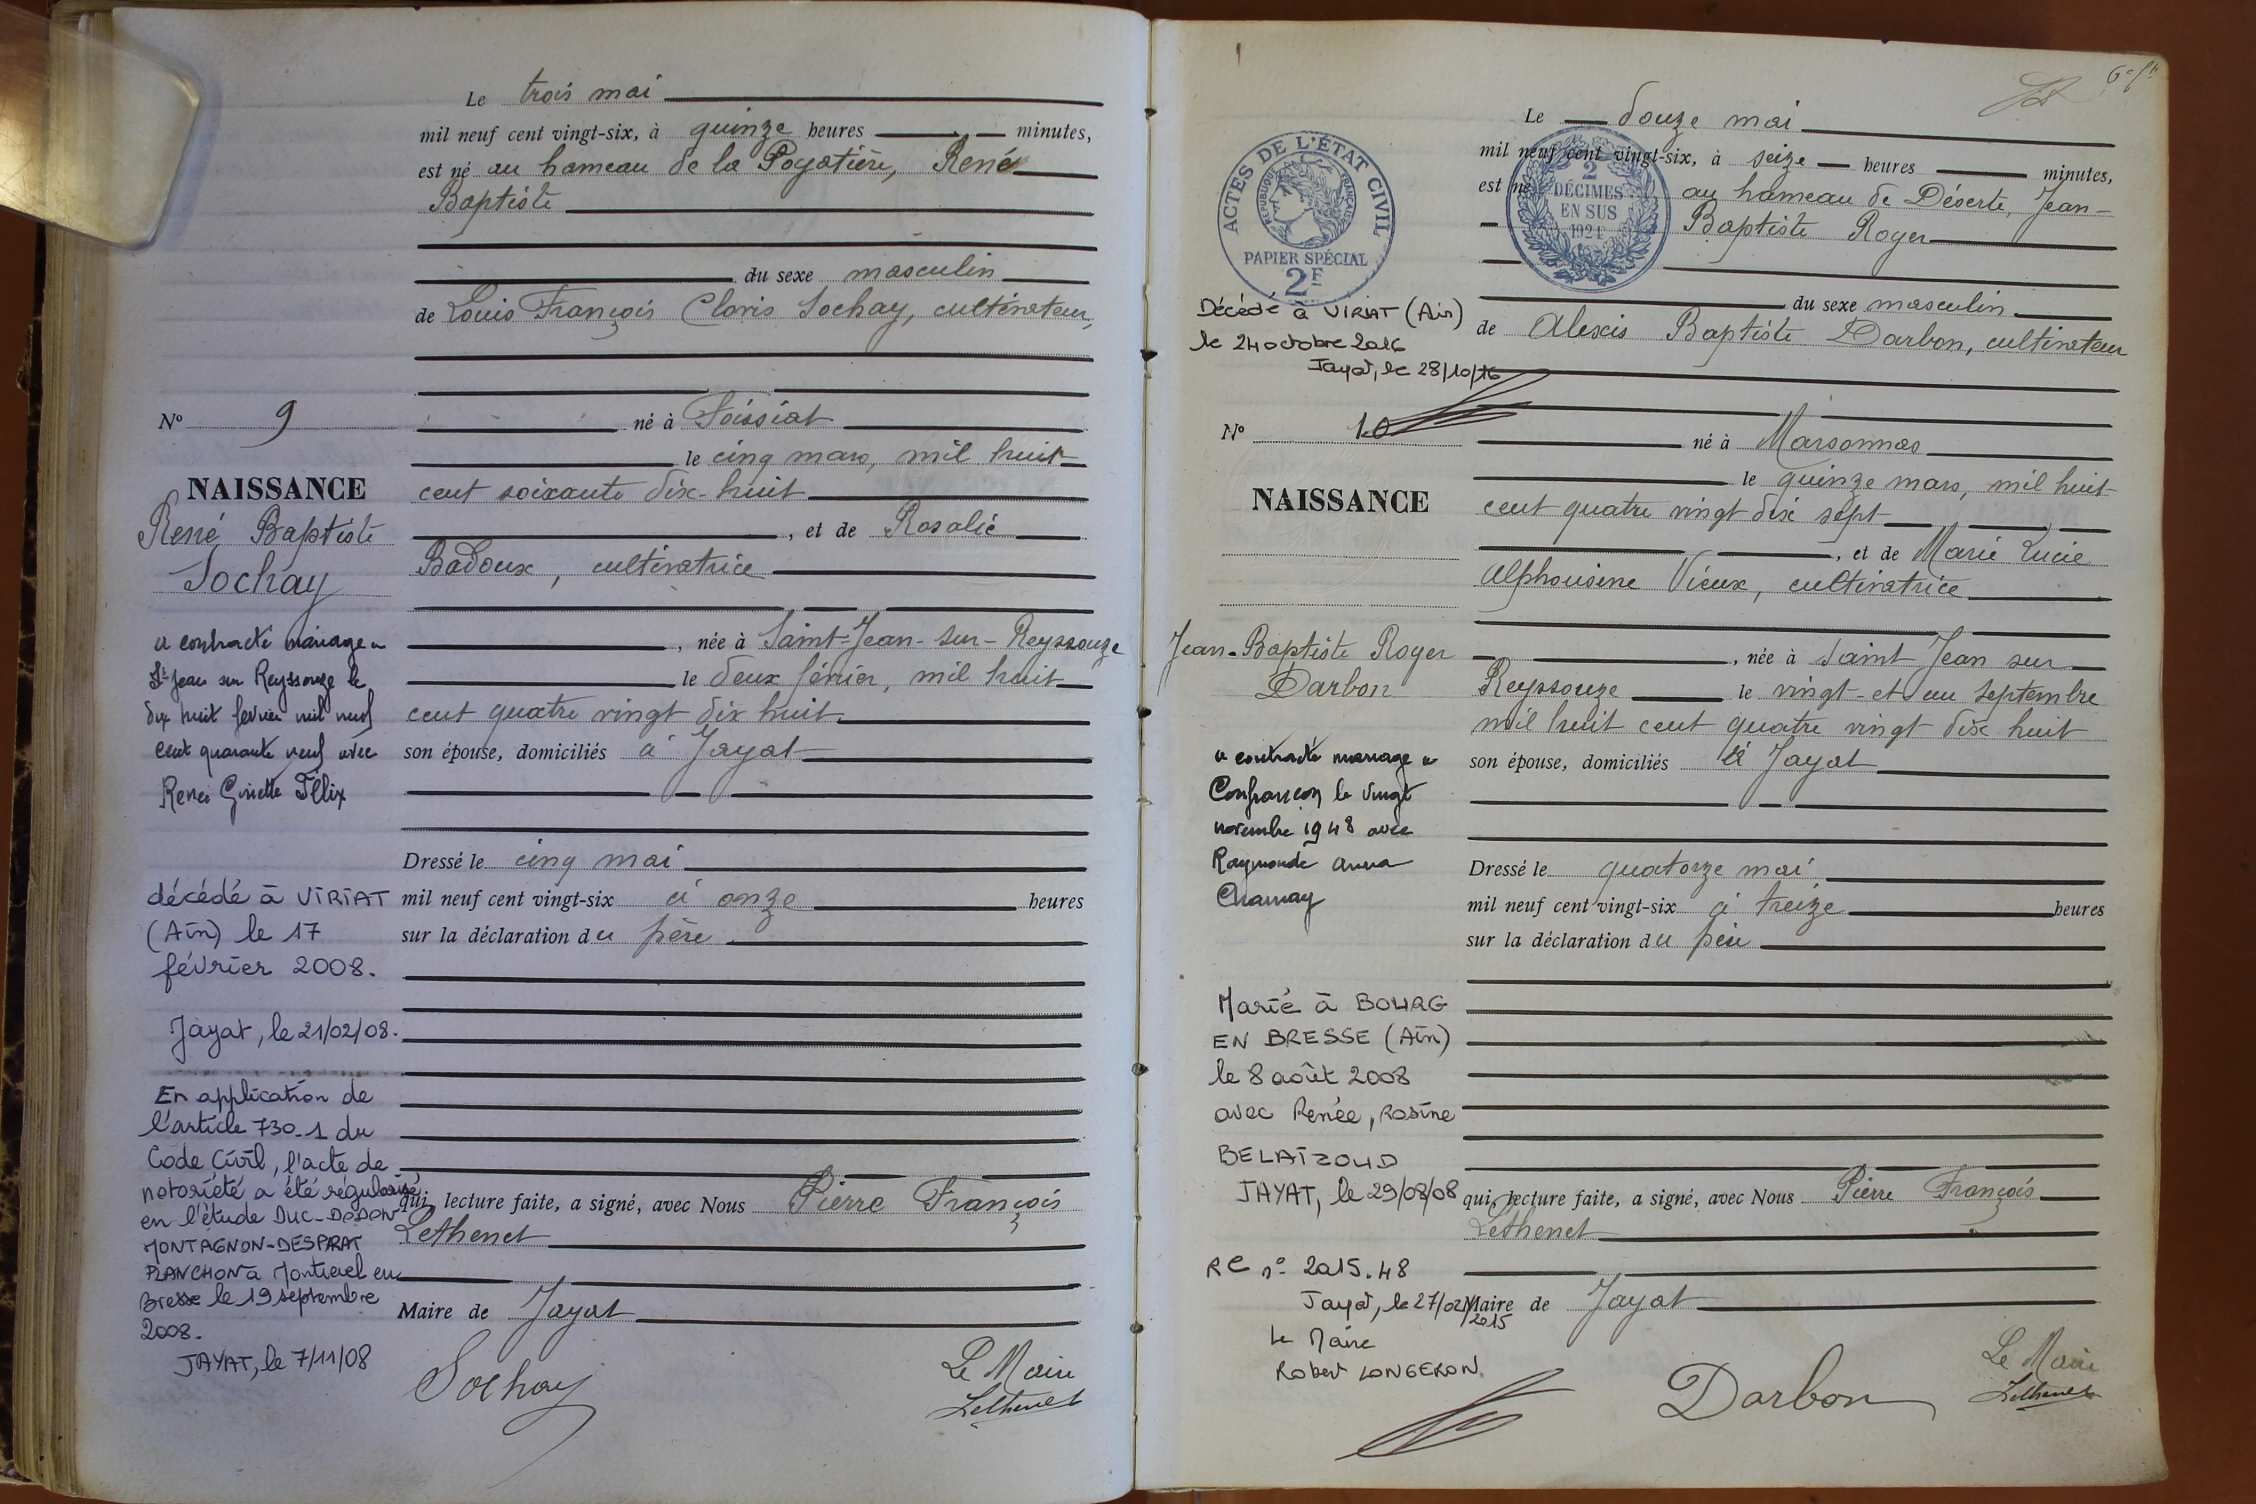 Le trois mai
mil neuf cent vingt-six, à quinze heures minutes,
est né au hameau de la Poyatière, René
Baptiste
du sexe masculin
de Louis François Clovis Sochay, cultivateur,
né à Foissiat
le cinq mars, mil huit
cent soixante dix-huit
, et de Rosalie
Badoux, cultivatrice
, née à Saint-Jean-sur-Reyssouze
le deux février, mil huit
cent quatre vingt dix huit
son épouse, domiciliés à Jayat
Dressé le cinq mai
mil neuf cent vingt-six à onze heures
sur la déclaration du père
qui, lecture faite, a signé, avec Nous Pierre François
Lethenet
Maire de Jayat
Sochay
Le Maire
Lethenet
N° 9
NAISSANCE
René Baptiste
Sochay
a contracté mariage a
St Jean sur Reyssouze le
dix huit février mil neuf
cent quarante neuf avec
Renée Ginette Félix
décédé à VIRIAT
(Ain) le 17
février 2008.
Jayat, le 21/02/08.
En application de
l'article 730-1 du
Code Civil, l'acte de
notoriété a été régularisé
en l'étude DUC-DODON
MONTAGNON-DESPRAT
PLANCHON à Montrevel en
Bresse le 19 septembre
2008.
JAYAT, le 7/11/08
6e ft
Le douze mai
mil neuf cent vingt-six, à seize heures minutes,
est né au hameau de Déserte, Jean-
Baptiste Roger
du sexe masculin
de Alexis Baptiste Darbon, cultivateur
né à Marsonnas
le quinze mars, mil huit
cent quatre vingt dix sept
, et de Marie Lucie
Alphonsine Vieux, cultivatrice
, née à Saint Jean sur
Reyssouze le vingt-et un septembre
mil huit cent quatre vingt dix huit
son épouse, domiciliés à Jayat
Dressé le quatorze mai
mil neuf cent vingt-six à treize heures
sur la déclaration du père
qui, lecture faite, a signé, avec Nous Pierre François
Lethenet
Maire de Jayat
Darbon
Le Maire
Lethenet
ACTES DE L'ÉTAT CIVIL
RÉPUBLIQUE FRANÇAISE
PAPIER SPÉCIAL
2F
2
DÉCIMES
EN SUS
1921
Décédé à VIRIAT (Ain)
le 24 octobre 2016
Jayat, le 28/10/16
N° 10
NAISSANCE
Jean-Baptiste Roger
Darbon
a contracté mariage a
Confrançon le vingt
novembre 1948 avec
Raymonde Anna
Charnay
Marié à BOURG
EN BRESSE (Ain)
le 8 août 2008
avec Renée, Rosine
BELAIZOUD
JAYAT, le 29/08/08
RC n° 2015.48
Jayat, le 27/02/2015
Le Maire
Robert LONGERON